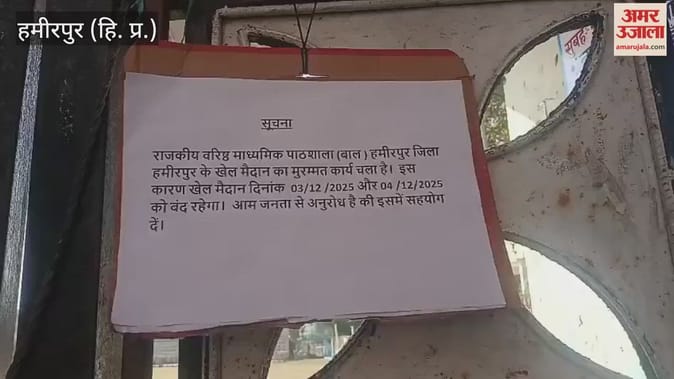 हमीरपुर (हि. प्र.)
अमर
उजाला
amarujala.com
सुबह
सूचना
राजकीय वरिष्ठ माध्यमिक पाठशाला (बाल ) हमीरपुर जिला
हमीरपुर के खेल मैदान का मुरम्मत कार्य चला है। इस
कारण खेल मैदान दिनांक 03/12 /2025 और 04 /12/2025
को बंद रहेगा। आम जनता से अनुरोध है की इसमें सहयोग
दें।